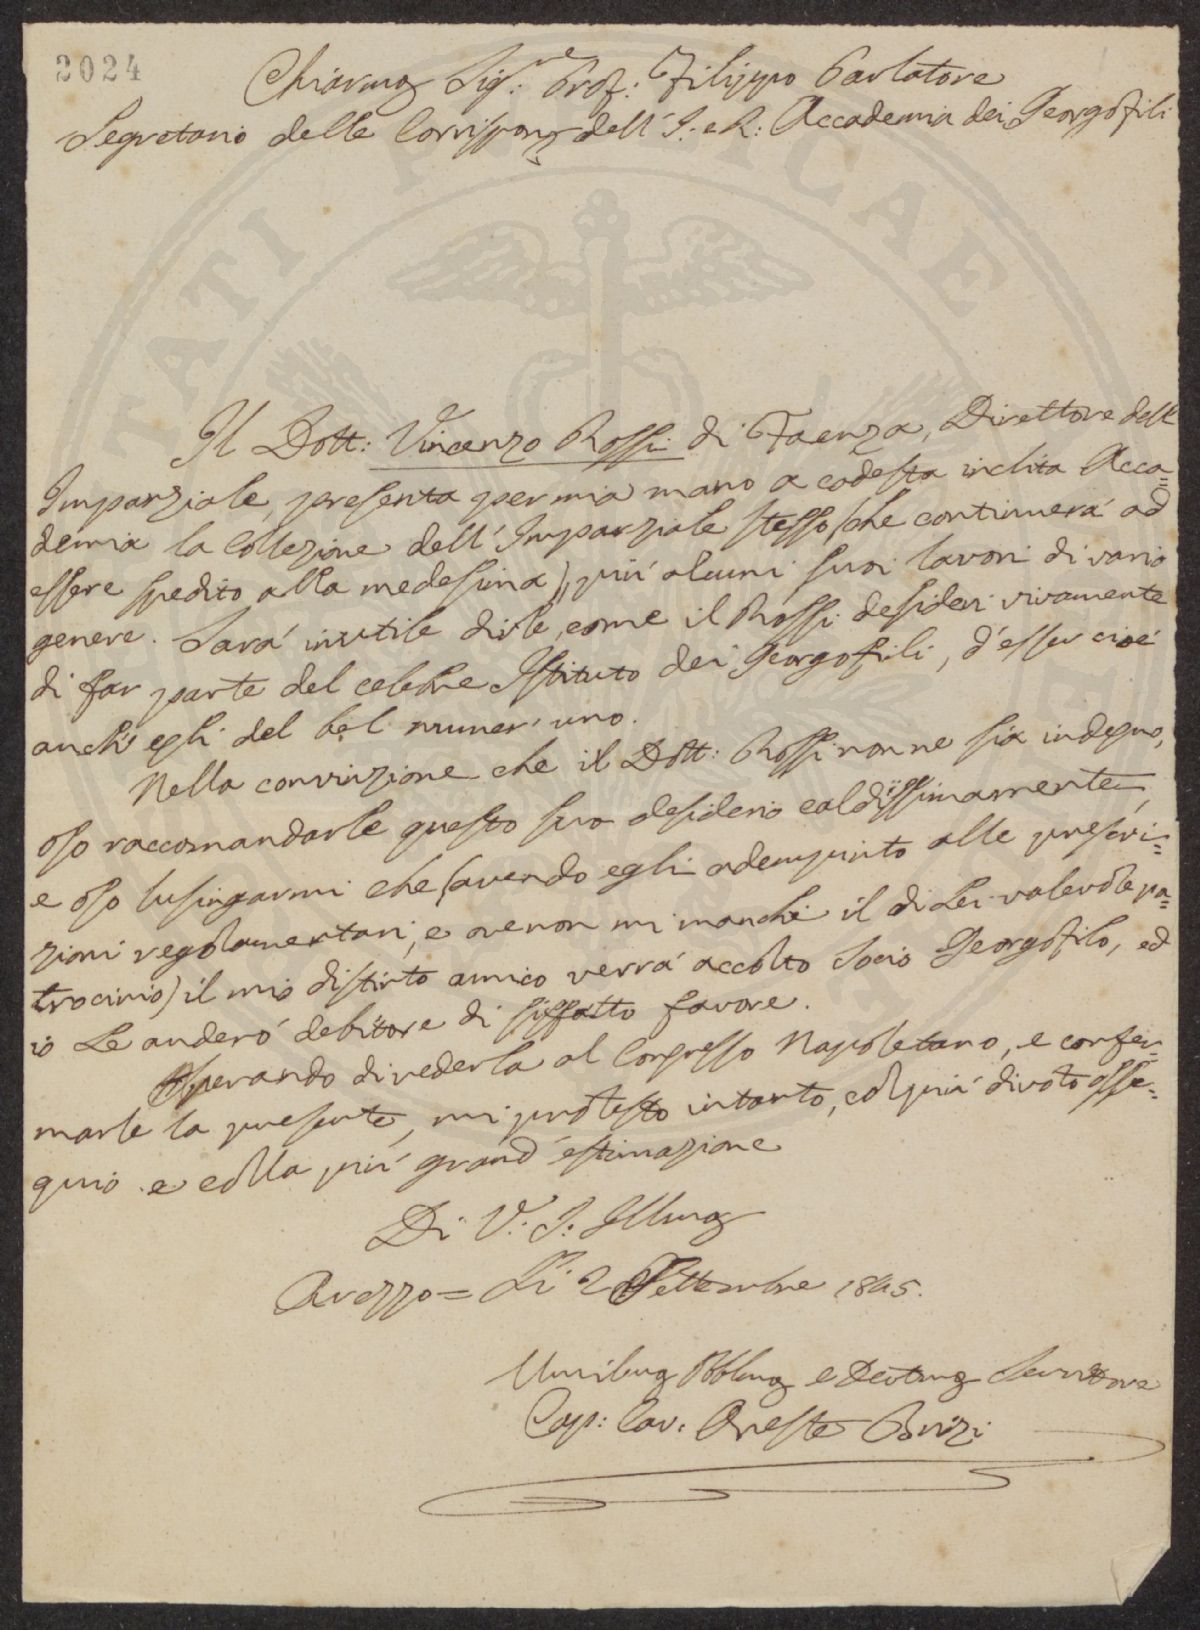 2024
Chiarmo Sigre: Prof: Filippo Parlatore
Segretario delle Corrispond dell' I. e R: Accademia dei Georgofili
Il Dott: Vincenzo Rossi di Faenza, Direttore dell'
Imparziale, presenta per mia mano a codesta inclita Acca=
demia la Collezione dell'Imparziale stesso (che continuerà ad
essere spedito alla medesima), più alcuni suoi lavori di vario
genere. Sarà inutile dirle, come il Rossi desideri vivamente
di far parte del celebre Istituto dei Georgofili, d'esser cioè
anch'egli del bel numer'uno.
Nella convinzione che il Dott: Rossi non ne sia indegno,
oso raccomandarle questo suo desiderio caldissimamente,
e oso lusingarmi che (avendo egli adempiuto alle prescri=
zioni regolamentari, e ove non mi manchi il di Lei valevole pa=
trocinio) il mio distinto amico verrà accolto Socio Georgofilo, ed
io Le anderò debitore di siffatto favore.
Sperando di vederla al Congresso Napoletano, e confer=
marle la presente, mi protesto intanto, col più divoto osse=
quio e colla più grand'estimazione
Di V. S. Illma
Arezzo = Li 2 Settembre 1845.
Umilmo Obblmo e Devotmo Servitore
Cap: Cav. Oreste Brizi